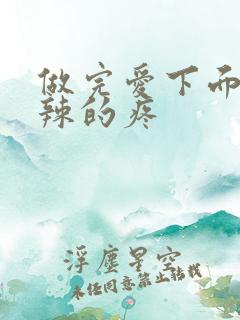 做完爱下而
辣的疼
浮尘星空
未经同意禁止转载